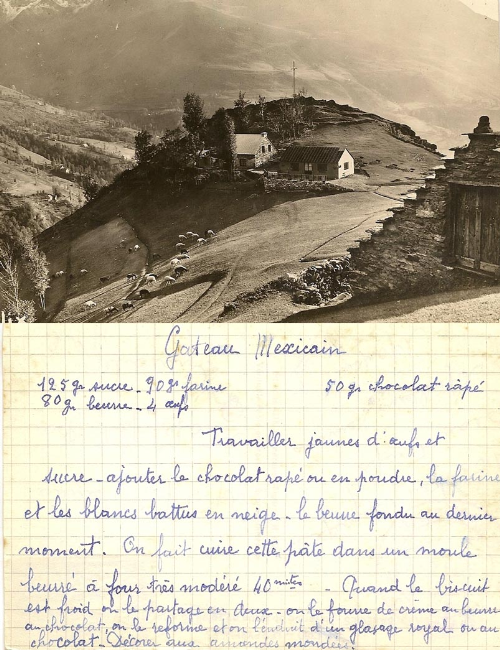 Gateau Mexicain
125 gr sucre - 90 gr farine
50 gr chocolat râpé
80 gr beurre - 4 œufs
Travailler jaunes d'œufs et
sucre - ajouter le chocolat rapé ou en poudre, la farine
et les blancs battus en neige - le beurre fondu au dernier
moment. On fait cuire cette pâte dans un moule
beurré à four très modéré 40 mites - Quand le biscuit
est froid on le partage en deux - on le fourre de creme au beurre
au chocolat, on le reforme et on l'enduit d'un glasage royal ou au
chocolat - Décorer aux amandes mondées.